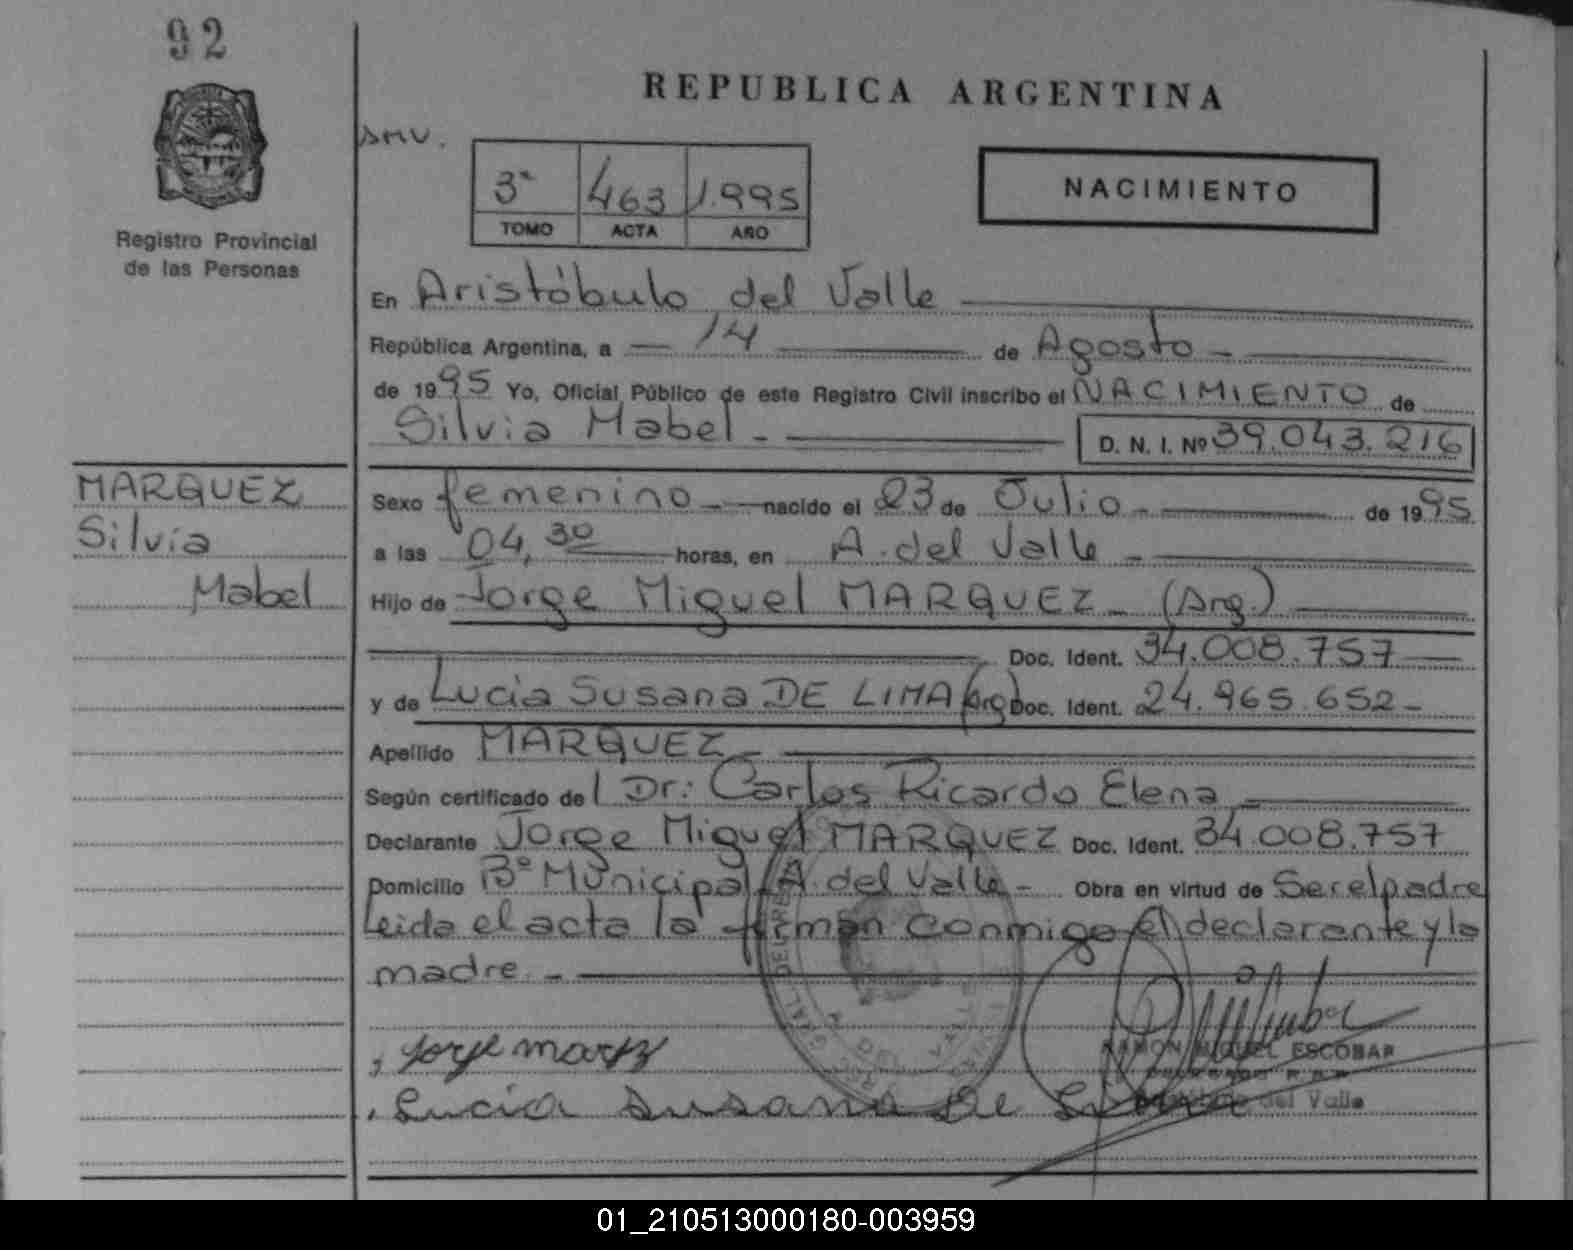 92
REPUBLICA ARGENTINA
SMV.
3ª 463 1.995
TOMO ACTA AÑO
NACIMIENTO
Registro Provincial
de las Personas
En Aristóbulo del Valle
República Argentina, a 14 de Agosto
de 1995 Yo, Oficial Público de este Registro Civil inscribo el NACIMIENTO de
Silvia Mabel D. N. I. Nº 39.043.216
MARQUEZ
Silvia
Mabel
Sexo femenino nacido el 23 de Julio de 1995
a las 04,30 horas, en A. del Valle
Hijo de Jorge Miguel MARQUEZ (Arg.)
Doc. Ident. 34.008.757
y de Lucia Susana DE LIMA (Arg) Doc. Ident. 24.965.652
Apellido MARQUEZ
Según certificado del Dr: Carlos Ricardo Elena
Declarante Jorge Miguel MARQUEZ Doc. Ident. 34.008.757
Domicilio Bº Municipal A. del Valle Obra en virtud de Ser el padre
Leida el acta la firman conmigo el declarante y la
madre.
Jorge marqz
RAMON MIGUEL ESCOBAR
Lucia Susana De Lima
del Valle
01_210513000180-003959